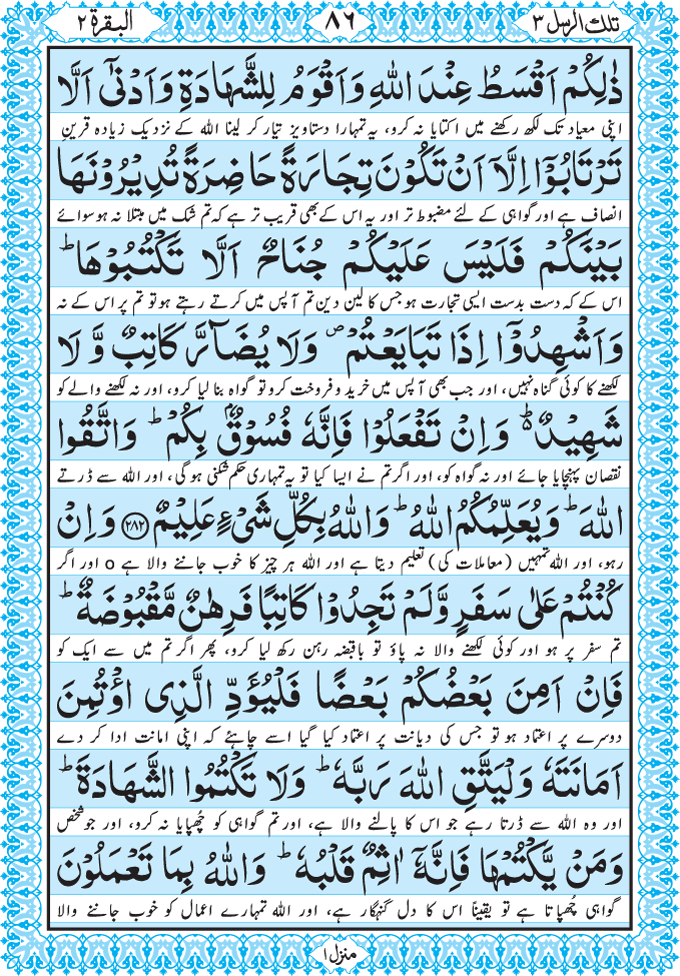 تلك الرسل ٣
٨٦
البقرة ٢
ذٰلِكُمۡ اَقۡسَطُ عِنۡدَ اللّٰهِ وَاَقۡوَمُ لِلشَّهَادَةِ وَاَدۡنٰۤى اَلَّا
اپنی معیاد تک لکھ رکھنے میں اکتایا نہ کرو، یہ تمہارا دستاویز تیار کر لینا اللہ کے نزدیک زیادہ قرینِ
تَرۡتَابُوۡۤا اِلَّاۤ اَنۡ تَكُوۡنَ تِجَارَةً حَاضِرَةً تُدِيۡرُوۡنَهَا
انصاف ہے اور گواہی کے لئے مضبوط تر اور یہ اس کے بھی قریب تر ہے کہ تم شک میں مبتلا نہ ہو سوائے
بَيۡنَكُمۡ فَلَيۡسَ عَلَيۡكُمۡ جُنَاحٌ اَلَّا تَكۡتُبُوۡهَاؕ
اس کے کہ دست بدست ایسی تجارت ہو جس کا لین دین تم آپس میں کرتے رہتے ہو تو تم پر اس کے نہ
وَاَشۡهِدُوۡۤا اِذَا تَبَايَعۡتُمۡ ص وَلَا يُضَآرَّ كَاتِبٌ وَّ لَا
لکھنے کا کوئی گناہ نہیں، اور جب بھی آپس میں خرید و فروخت کرو تو گواہ بنا لیا کرو، اور نہ لکھنے والے کو
شَهِيۡدٌ۬ؕ وَاِنۡ تَفۡعَلُوۡا فَاِنَّهٗ فُسُوۡقٌۢ بِكُمۡؕ وَاتَّقُوا
نقصان پہنچایا جائے اور نہ گواہ کو، اور اگر تم نے ایسا کیا تو یہ تمہاری حکم شکنی ہوگی، اور اللہ سے ڈرتے
اللّٰهَؕ وَيُعَلِّمُكُمُ اللّٰهُؕ وَاللّٰهُ بِكُلِّ شَىۡءٍ عَلِيۡمٌ ﴿٢٨٢﴾ وَاِنۡ
رہو، اور اللہ تمہیں (معاملات کی) تعلیم دیتا ہے اور اللہ ہر چیز کا خوب جاننے والا ہے o اور اگر
كُنۡتُمۡ عَلٰى سَفَرٍ وَّلَمۡ تَجِدُوۡا كَاتِبًا فَرِهٰنٌ مَّقۡبُوۡضَةٌؕ
تم سفر پر ہو اور کوئی لکھنے والا نہ پاؤ تو باقبضہ رہن رکھ لیا کرو، پھر اگر تم میں سے ایک کو
فَاِنۡ اَمِنَ بَعۡضُكُمۡ بَعۡضًا فَلۡيُؤَدِّ الَّذِى اؤۡتُمِنَ
دوسرے پر اعتماد ہو تو جس کی دیانت پر اعتماد کیا گیا اسے چاہئے کہ اپنی امانت ادا کر دے
اَمَانَتَهٗ وَلۡيَتَّقِ اللّٰهَ رَبَّهٗؕ وَلَا تَكۡتُمُوا الشَّهَادَةَؕ
اور وہ اللہ سے ڈرتا رہے جو اس کا پالنے والا ہے، اور تم گواہی کو چُھپایا نہ کرو، اور جو شخص
وَمَنۡ يَّكۡتُمۡهَا فَاِنَّهٗۤ اٰثِمٌ قَلۡبُهٗؕ وَاللّٰهُ بِمَا تَعۡمَلُوۡنَ
گواہی چُھپاتا ہے تو یقیناً اس کا دل گنہگار ہے، اور اللہ تمہارے اعمال کو خوب جاننے والا
منزل ١